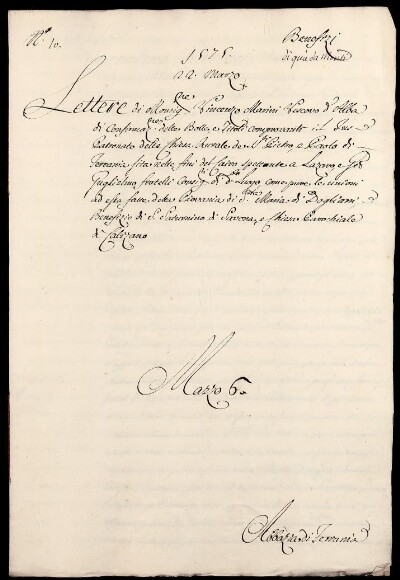 N.° 10.
Benefizi
di quà da monti
1575.
22. Marzo
Lettere di Monsig.re Vincenzo Marini Vescovo d'Alba
di Confirma.ne delle Bolle, e titoli comprovanti il Jus
Patronato della Chiesa Rurale de S.ti Pietro, e Paolo di
Ferrania sita nelle fini del fu spettante a Lazaro, e
Guglielmo fratelli di d.° Luogo come pure le unioni
ad essa fatte della Pievania di S. Maria di Dogliani
Benefizio di S. Saturnino di Savona, e Chiesa Parochiale
di Calizano
Mazzo 6.
Abbazia di Ferrania